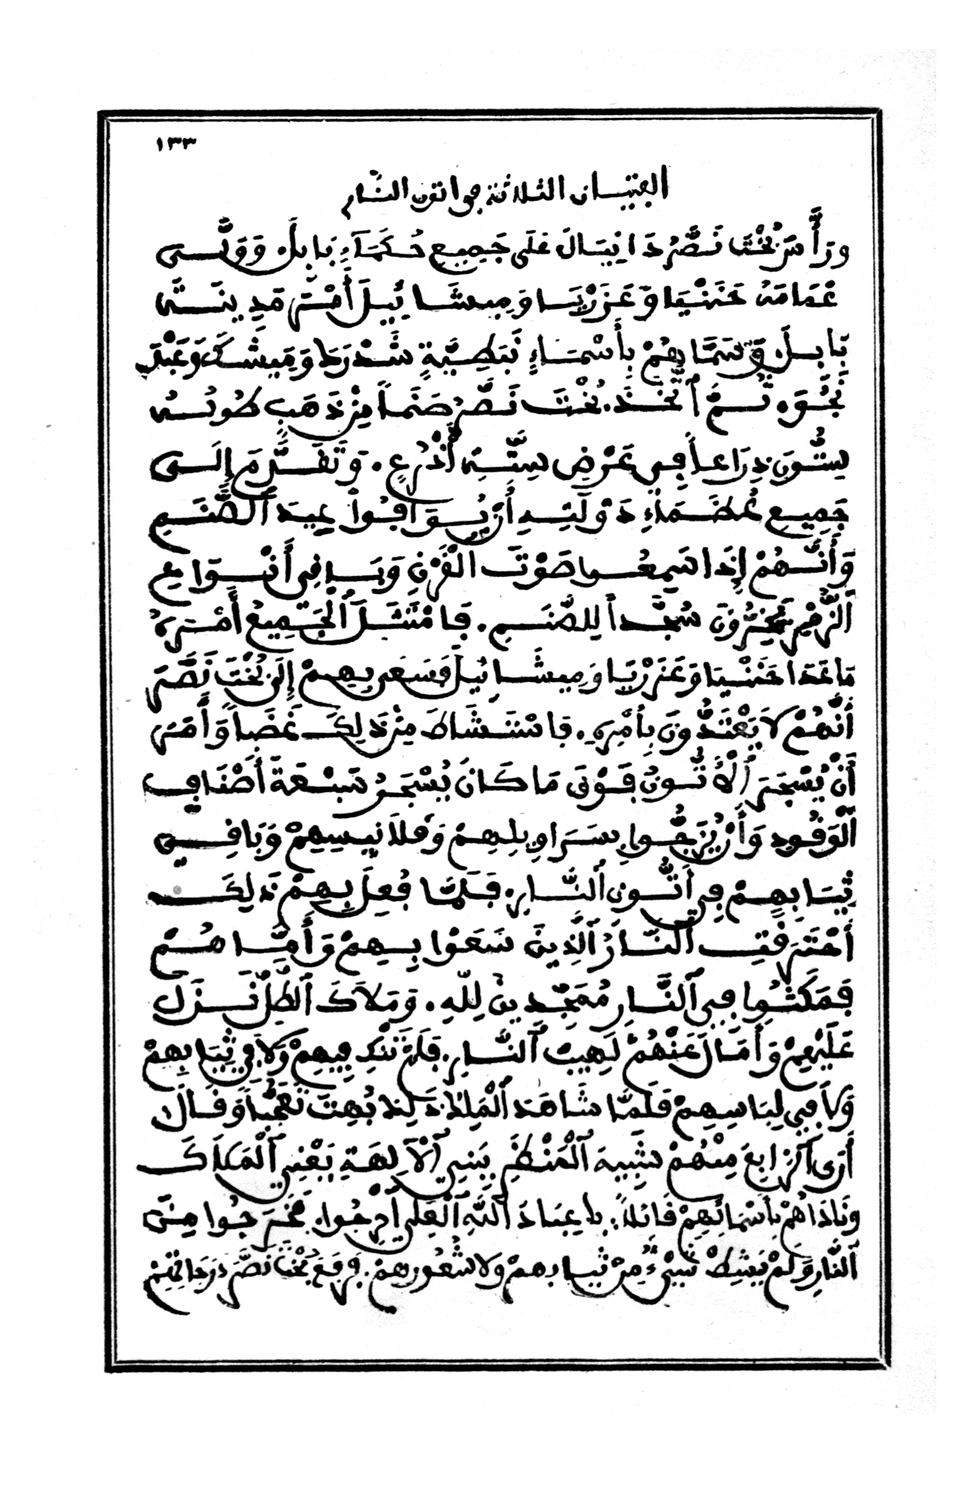 ١٣٣
الفتيان الثلاثة في اتون النار
ورَأَّسَ بُخْتَ نَصَّرُ دَانِيَالَ عَلَى جَمِيعِ حُكَمَآءِ بَابِلَ وَوَلَّى
عَمَامَهُ حَنَنْيَا وَعَزَرْيَا وَمِيشَائِيلَ أَمْرَ مَدِينَةِ
بَابِلَ وَسَمَّاهُمْ بِأَسْمَاءٍ نَبَطِيَّةٍ شَدْرَخَ وَمَيشَكَ وَعَبْدَ
نَجُّوَه ثُمَّ ٱتَّخَذَ بُخْتَ نَصَّرُ صَنَماً مِنْ ذَهَبٍ طُولُهُ
سِتُّونَ ذِرَاعاً فِي عَرْضِ سِتَّةِ أَذْرُعٍ. وَتَقَدَّمَ إِلَى
جَمِيعِ عُظَمَاءِ دَوْلَتِهِ أَنْ يُوَافُوا عِيدَ ٱلصَّنَمِ
وَأَنَّهُمْ إِذَا سَمِعُوا صَوْتَ الْقَرْنِ وَبَاقِي أَنْوَاعِ
ٱلزَّمْرِ يَخِرُّونَ سُجَّداً لِلصَّنَمِ. فَامْتَثَلَ ٱلْجَمِيعُ أَمْرَهُ
مَا عَدَا حَنَنْيَا وَعَزَرْيَا وَمِيشَائِيلَ فَسَعَى بِهِمْ إِلَى بُخْتَ نَصَّرَ
أَنَّهُمْ لاَ يَعْتَدُّونَ بِأَمْرِهِ. فَاسْتَشَاطَ مِنْ ذَلِكَ غَضَباً وَأَمَرَ
أَنْ يُسْجَرَ ٱلْأَتُّونُ فَوْقَ مَا كَانَ يُسْجَرُ سَبْعَةَ أَضْعَافِ
ٱلْوَقُودِ وَأَنْ يُزَجُّوا بِسَرَاوِيلِهِمْ وَقَلاَنِيسِهِمْ وَبَاقِي
ثِيَابِهِمْ فِي أَتُّونِ ٱلنَّارِ. فَلَمَّا فُعِلَ بِهِمْ ذَلِكَ
أَحْتَرَقَتِ ٱلنَّارُ ٱلَّذِينَ سَعَوْا بِهِمْ وَأَمَّا هُمْ
فَمَكَثُوا فِي ٱلنَّارِ مُمَجِّدِينَ لِلّٰهِ. وَمَلاَكَ ٱلطَّلِّ نَزَلَ
عَلَيْهِمْ وَأَمَالَ عَنْهُمْ لَهِيبَ ٱلنَّارِ. فَلَمْ تَنْكِ فِيهِمْ وَلاَ فِي ثِيَابِهِمْ
وَلاَ فِي لِبَاسِهِمْ فَلَمَّا شَاهَدَ ٱلْمَلِكُ ذَلِكَ بُهِتَ تَعَجُّباً وَقَالَ
أَرَى ٱلرَّابِعَ مِنْهُمْ شَبِيهَ ٱلْمَنْظَرِ بِبَنِي ٱلْآلِهَةِ يَعْنِي ٱلْمَلاَكَ
وَنَادَاهُمْ بِأَسْمَائِهِمْ قَائِلاً: يا عِبَادَ ٱللّٰهِ ٱلْعَلِي اخْرُجُوا. فَخَرَجُوا مِنَ
ٱلنَّارِ وَلَمْ يَشِطْ شَيْءٌ مِنْ ثِيَابِهِمْ وَلاَ شُعُورِهِمْ. فَرَفَعَ بُخْتَ نَصَّرَ دَرَجَاتِهِمْ